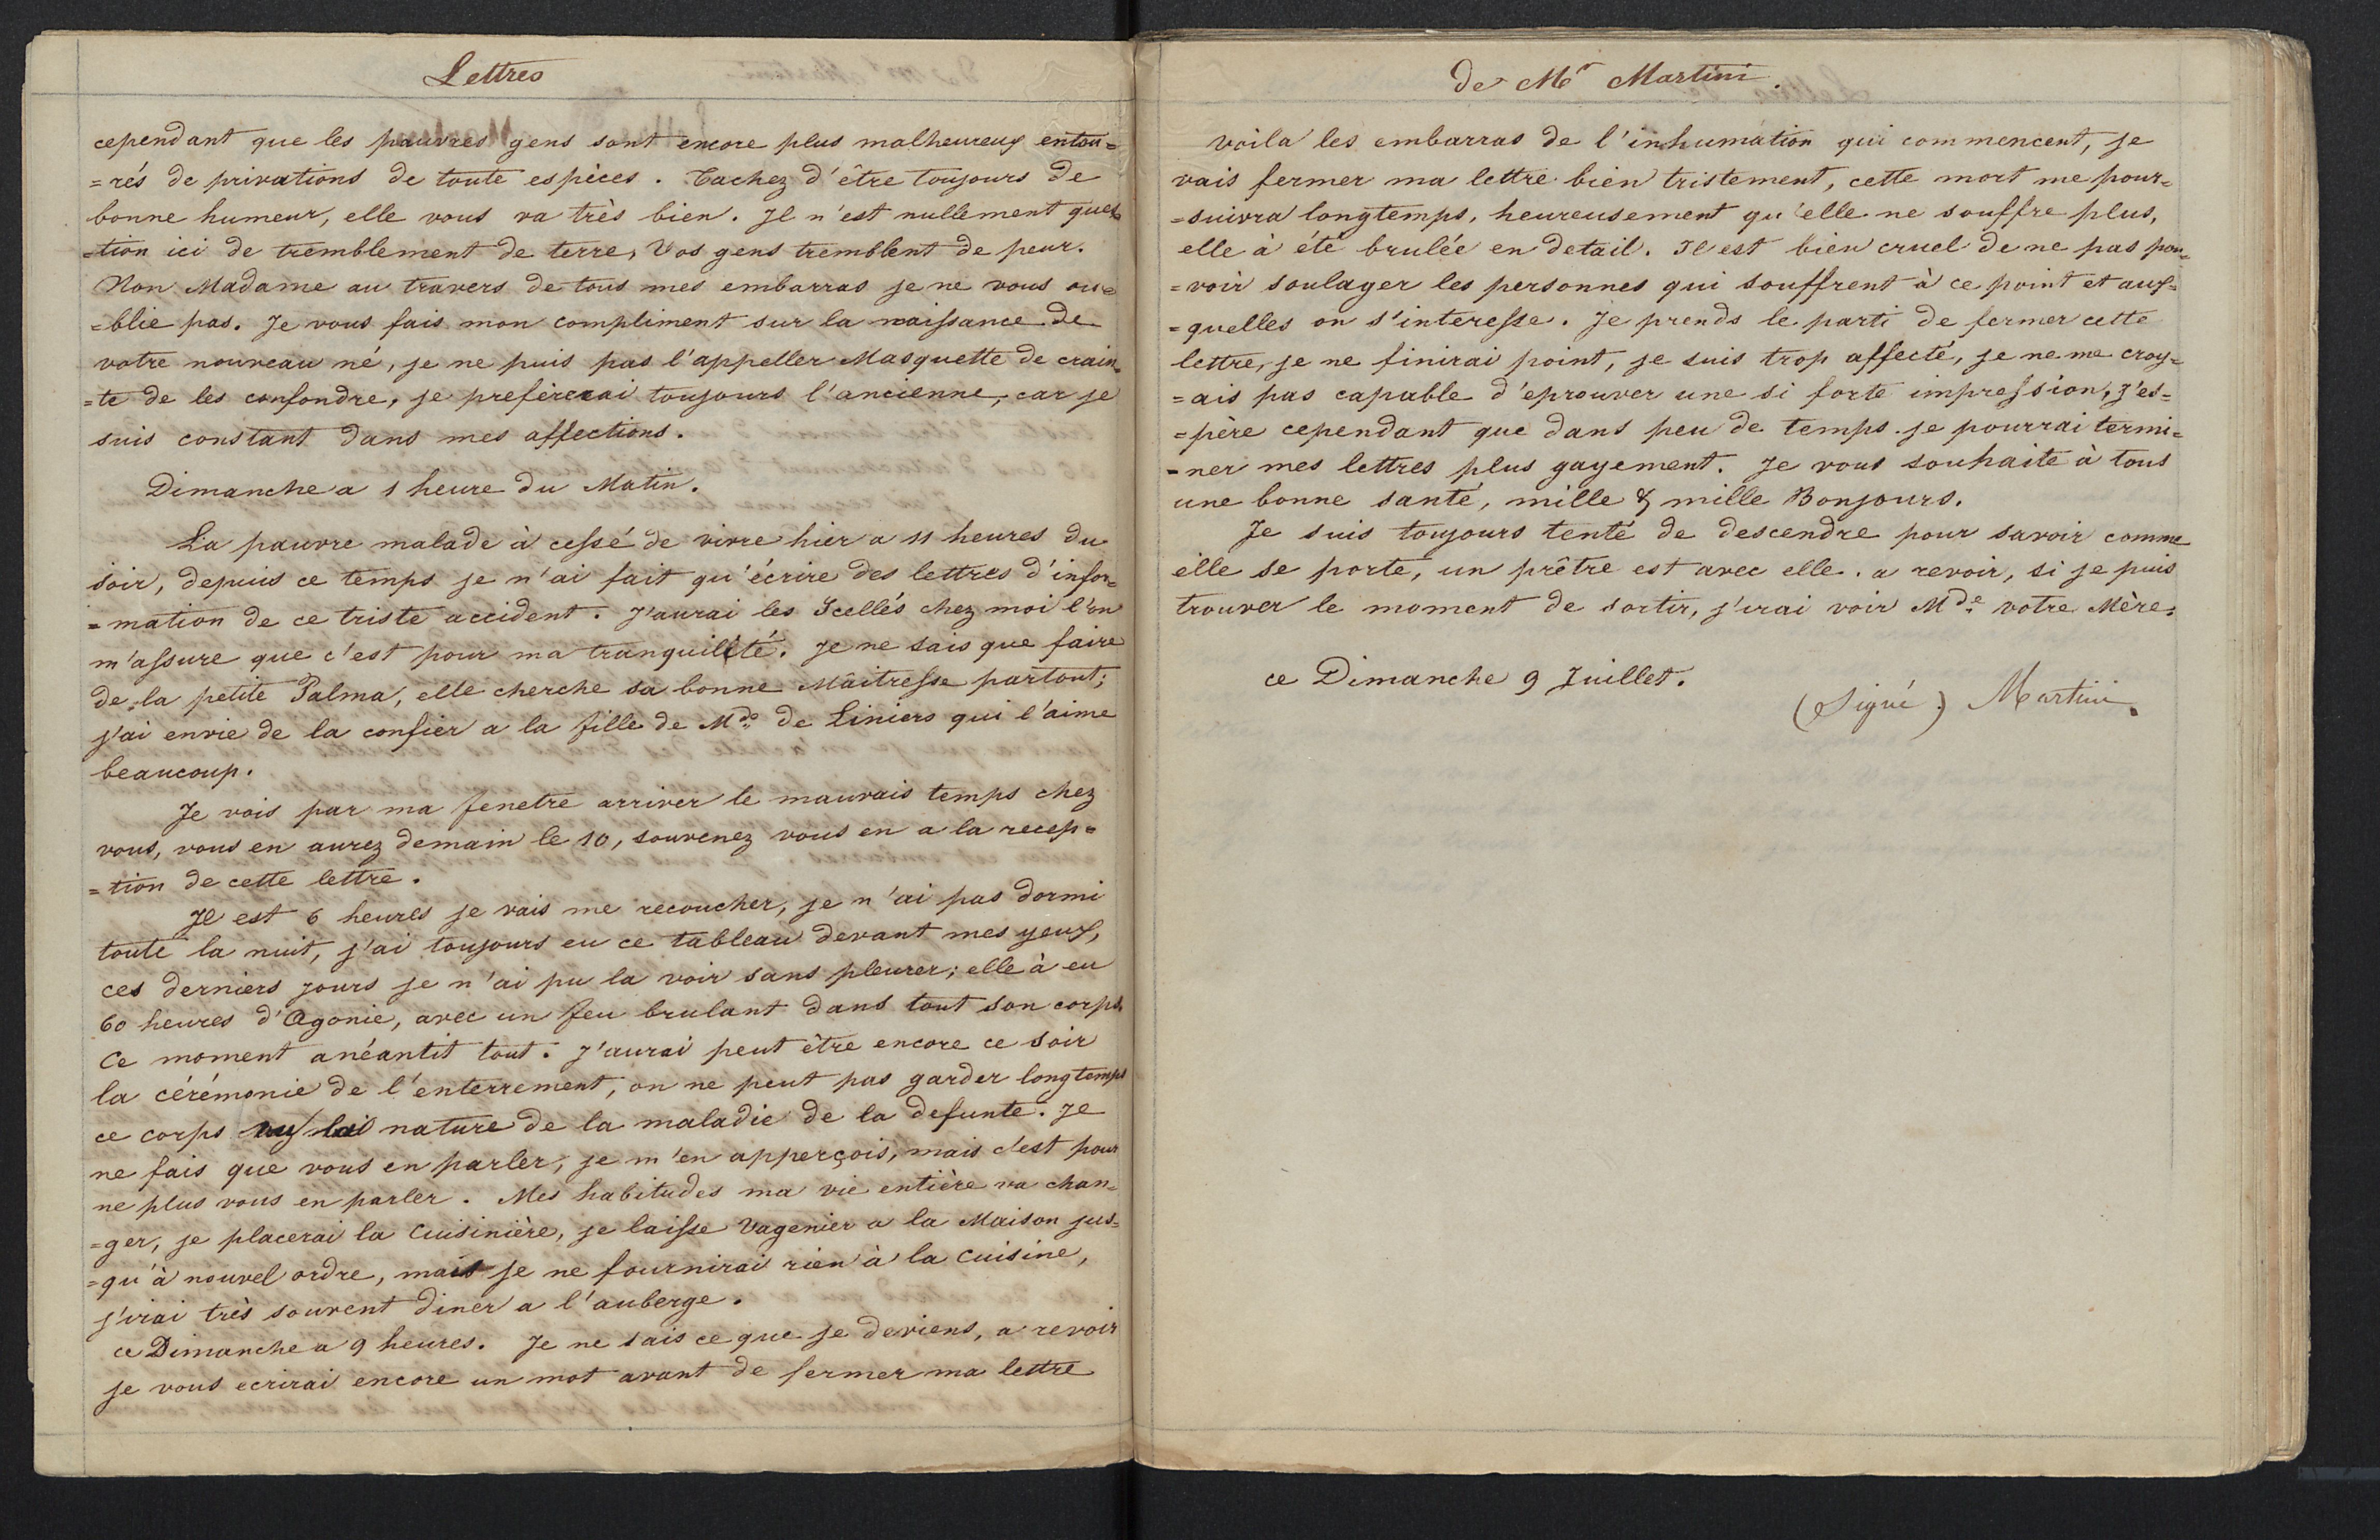 Lettres
cependant que les pauvres gens sont encore plus malheureux entou=
=rés de privations de toute espèces. Tachez d'être toujours de
bonne humeur, elle vous va très bien. Il n'est nullement ques
=tion ici de tremblement de terre, Vos gens tremblent de peur.
Non Madame au travers de tous mes embarras je ne vous ou=
=blie pas. Je vous fais mon compliment sur la naissance de
votre nouveau né, je ne puis pas l'appeller Masquette de crain=
=te de les confondre, je prefèrerai toujours l'ancienne, car je
suis constant dans mes affections.
Dimanche a 1 heure du Matin.
La pauvre malade à cessé de vivre hier a 11 heures du
soir, depuis ce temps je n'ai fait qu'écrire des lettres d'infor=
=mation de ce triste accident. J'aurai les Scellés chez moi l'on
m'assure que c'est pour ma tranquilité. Je ne sais que faire
de la petite Palma, elle cherche sa bonne Mâitresse partout;
j'ai envie de la confier a la fille de Mde de Liniers qui l'aime
beaucoup.
Je vois par ma fenetre arriver le mauvais temps chez
vous, vous en aurez demain le 10, souvenez vous en a la recep=
=tion de cette lettre.
Il est 6 heures je vais me recoucher, je n'ai pas dormi
toute la nuit, j'ai toujours eu ce tableau devant mes yeux,
ces derniers jours je n'ai pu la voir sans pleurer; elle à eu
60 heures d'Agonie, avec un feu brulant dans tout son corps.
Ce moment anéantit tout. J'aurai peut être encore ce soir
la cérémonie de l'enterrement, on ne peut pas garder longtemps
ce corps vu la nature de la maladie de la defunte. Je
ne fais que vous en parler, je m'en apperçois, mais c'est pour
ne plus vous en parler. Mes habitudes ma vie entière va chan=
=ger, je placerai la Cuisinière, je laisse Vagenier a la Maison jus=
=qu'à nouvel ordre, mais je ne fournirai rien à la Cuisine,
j'irai très souvent diner a l'auberge.
ce Dimanche a 9 heures. Je ne sais ce que je deviens, a revoir
je vous ecrirai encore un mot avant de fermer ma lettre
de Mr Martini.
voila les embarras de l'inhumation qui commencent, je
vais fermer ma lettre bien tristement, cette mort me pour=
=suivra longtemps, heureusement qu'elle ne souffre plus,
elle à été brulée en detail. Il est bien cruel de ne pas pou=
=voir soulager les personnes qui souffrent à ce point et aux=
=quelles on s'interesse. Je prends le parti de fermer cette
lettre, je ne finirai point, je suis trop affecté, je ne me croy=
=ais pas capable d'eprouver une si forte impression, j'es=
=père cependant que dans peu de temps je pourrai termi=
=ner mes lettres plus gayement. Je vous souhaite à tous
une bonne santé, mille & mille Bonjours.
Je suis toujours tenté de descendre pour savoir comme
elle se porte, un prêtre est avec elle. a revoir, si je puis
trouver le moment de sortir, j'irai voir Mde votre Mère.
ce Dimanche 9 Juillet.
(Signé) Martini.